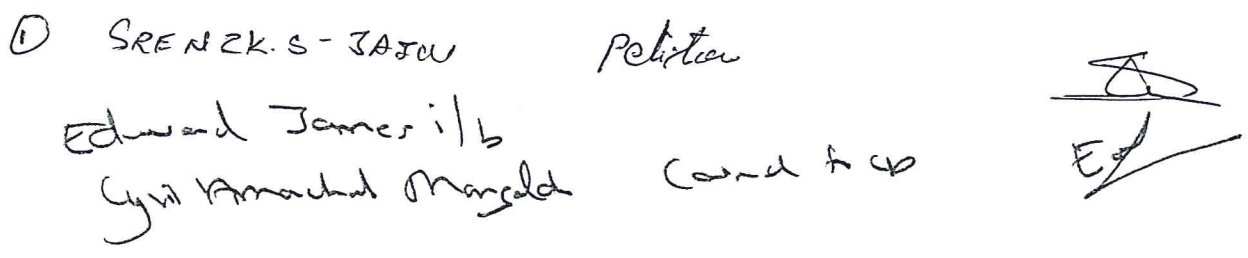 ① SRENZK.S-JAIN Petitioner
Edward James i/b
Cyril Amarchand Mangaldas Counsel to CD